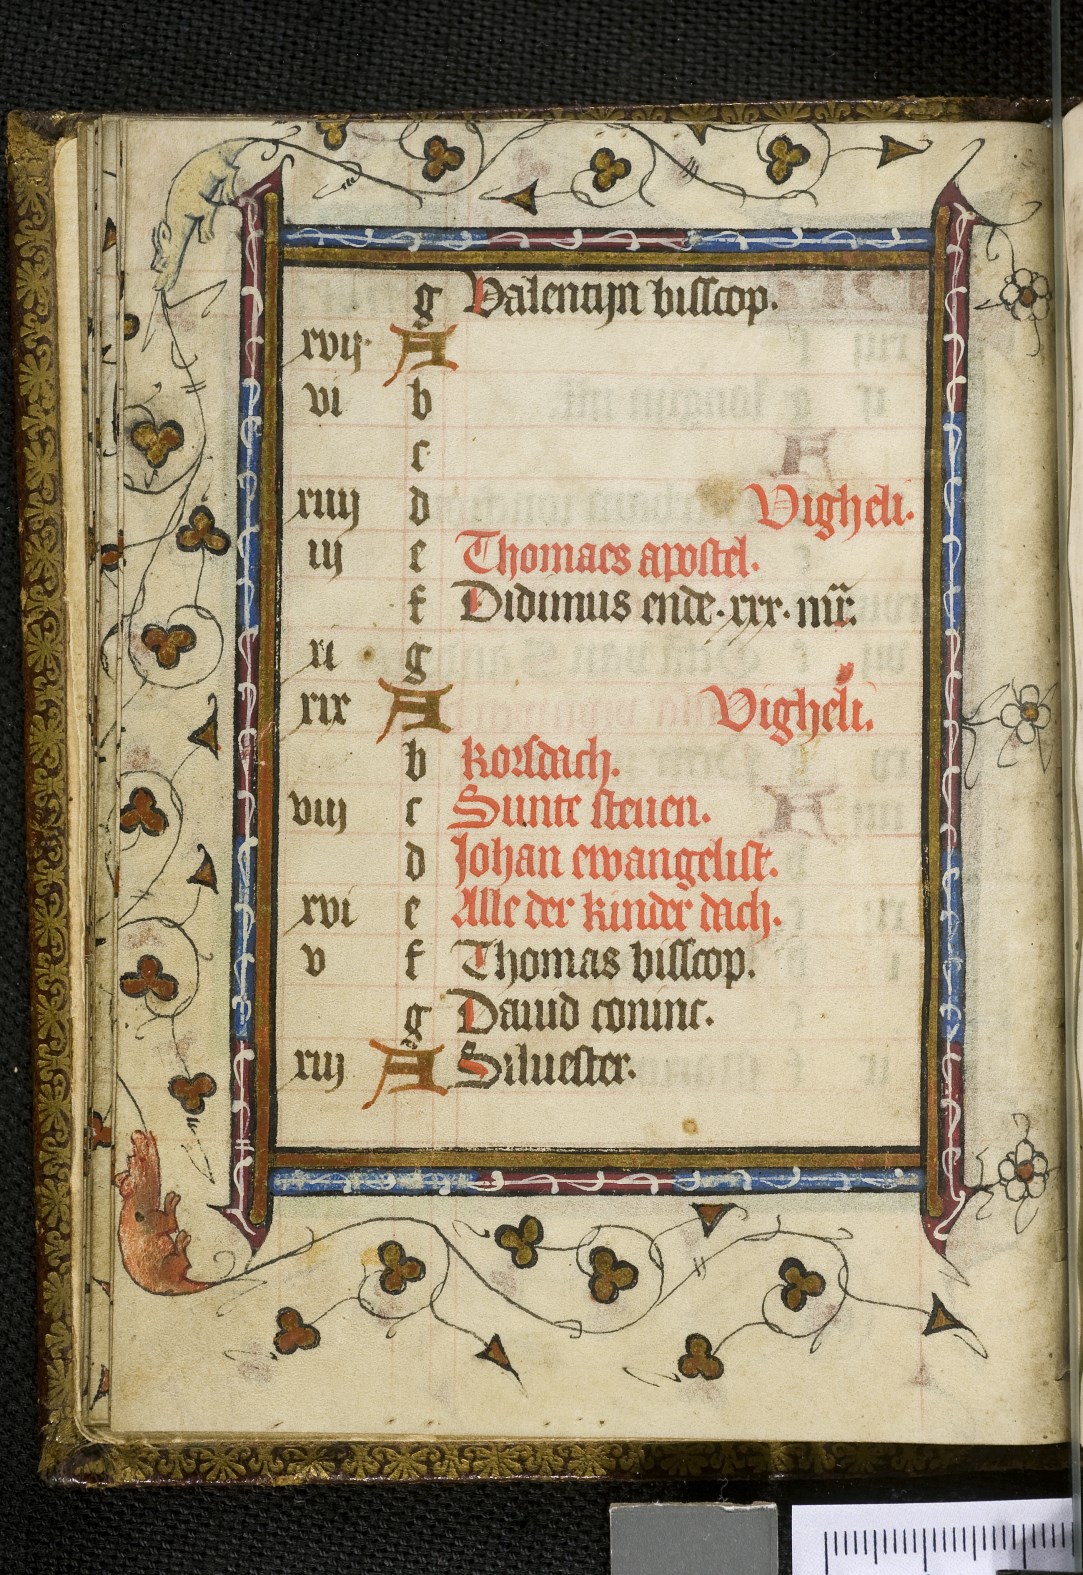 g Valentijn bisscop.
xvij A
vi b
c
xiiij d Vigheli.
iij e Thomaes apostel.
f Didimus ende .xxx. mr̄.
xi g
xix A Vigheli.
b korsdach.
viij c Sunte steuen.
d Johan ewangelist.
xvi e Alle der kinder dach.
v f Thomas bisscop.
g Dauid coninc.
xiij A Siluester.